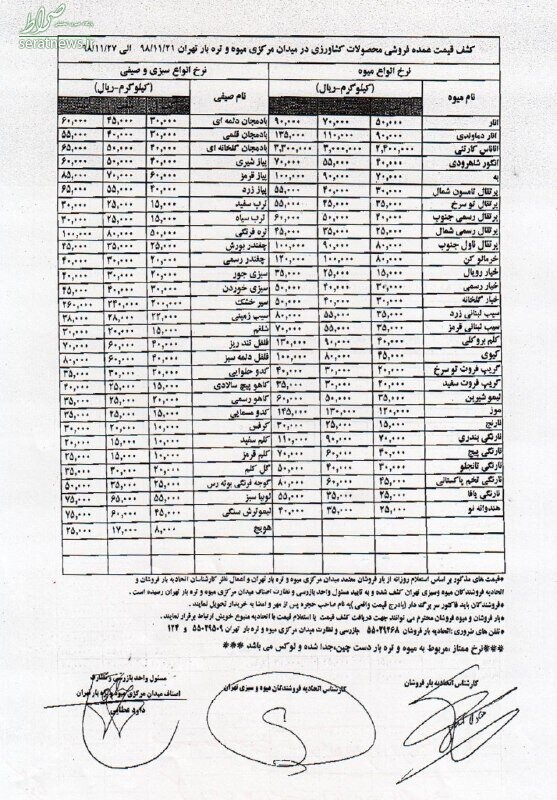 صراط
seratnews.ir
کشف قیمت عمده فروشی محصولات کشاورزی در میدان مرکزی میوه و تره بار تهران ۹۸/۱۱/۲۱ الی ۹۸/۱۱/۲۷
نرخ انواع میوه نرخ انواع سبزی و صیفی
نام میوه (کیلوگرم-ریال) نام صیفی (کیلوگرم-ریال)
انار ۵۰,۰۰۰ ۷۰,۰۰۰ ۹۰,۰۰۰ بادمجان دلمه ای ۳۰,۰۰۰ ۴۵,۰۰۰ ۶۰,۰۰۰
انار دماوندی ۹۰,۰۰۰ ۱۱۰,۰۰۰ ۱۳۵,۰۰۰ بادمجان قلمی ۳۰,۰۰۰ ۴۰,۰۰۰ ۵۵,۰۰۰
آناناس کارتنی ۲,۴۰۰,۰۰۰ ۳,۰۰۰,۰۰۰ ۳,۳۰۰,۰۰۰ بادمجان گلخانه ای ۴۰,۰۰۰ ۵۰,۰۰۰ ۶۵,۰۰۰
انگور شاهرودی ۴۰,۰۰۰ ۵۵,۰۰۰ ۷۰,۰۰۰ پیاز شیری ۴۰,۰۰۰ ۵۰,۰۰۰ ۶۰,۰۰۰
به ۷۰,۰۰۰ ۹۰,۰۰۰ ۱۰۰,۰۰۰ پیاز قرمز ۶۰,۰۰۰ ۷۰,۰۰۰ ۸۵,۰۰۰
پرتقال تامسون شمال ۳۰,۰۰۰ ۴۰,۰۰۰ ۵۵,۰۰۰ پیاز زرد ۴۰,۰۰۰ ۵۵,۰۰۰ ۶۵,۰۰۰
پرتقال تو سرخ ۳۵,۰۰۰ ۴۵,۰۰۰ ۵۵,۰۰۰ ترب سفید ۱۵,۰۰۰ ۲۵,۰۰۰ ۳۰,۰۰۰
پرتقال رسمی جنوب ۴۰,۰۰۰ ۵۰,۰۰۰ ۶۰,۰۰۰ ترب سیاه ۱۵,۰۰۰ ۲۵,۰۰۰ ۳۰,۰۰۰
پرتقال رسمی شمال ۲۵,۰۰۰ ۳۵,۰۰۰ ۴۵,۰۰۰ تره فرنگی ۵۰,۰۰۰ ۸۰,۰۰۰ ۱۰۰,۰۰۰
پرتقال ناول جنوب ۸۰,۰۰۰ ۹۰,۰۰۰ ۱۰۰,۰۰۰ چغندر بورش ۲۵,۰۰۰ ۳۵,۰۰۰ ۴۵,۰۰۰
خرمالو کن ۸۰,۰۰۰ ۱۰۰,۰۰۰ ۱۲۰,۰۰۰ چغندر رسمی ۲۰,۰۰۰ ۳۰,۰۰۰ ۴۰,۰۰۰
خیار رویال ۱۵,۰۰۰ ۲۵,۰۰۰ ۳۵,۰۰۰ سبزی جور ۲۰,۰۰۰ ۳۰,۰۰۰ ۴۰,۰۰۰
خیار رسمی ۳۰,۰۰۰ ۴۰,۰۰۰ ۵۰,۰۰۰ سبزی خوردن ۳۰,۰۰۰ ۴۰,۰۰۰ ۴۵,۰۰۰
خیار گلخانه ۳۰,۰۰۰ ۴۰,۰۰۰ ۵۰,۰۰۰ سیر خشک ۲۰۰,۰۰۰ ۲۴۰,۰۰۰ ۲۶۰,۰۰۰
سیب لبنانی زرد ۳۵,۰۰۰ ۵۵,۰۰۰ ۸۰,۰۰۰ سیب زمینی ۲۲,۰۰۰ ۲۸,۰۰۰ ۳۸,۰۰۰
سیب لبنانی قرمز ۳۵,۰۰۰ ۵۵,۰۰۰ ۷۰,۰۰۰ شلغم ۱۵,۰۰۰ ۲۰,۰۰۰ ۳۰,۰۰۰
کلم بروکلی ۴۰,۰۰۰ ۹۰,۰۰۰ ۱۳۰,۰۰۰ فلفل تند ریز ۴۰,۰۰۰ ۶۰,۰۰۰ ۷۰,۰۰۰
کیوی ۴۵,۰۰۰ ۸۰,۰۰۰ ۱۰۰,۰۰۰ فلفل دلمه سبز ۴۰,۰۰۰ ۶۰,۰۰۰ ۸۰,۰۰۰
گریپ فروت تو سرخ ۲۰,۰۰۰ ۳۰,۰۰۰ ۴۰,۰۰۰ کدو حلوایی ۲۰,۰۰۰ ۳۰,۰۰۰ ۴۰,۰۰۰
گریپ فروت سفید ۲۰,۰۰۰ ۳۰,۰۰۰ ۳۵,۰۰۰ کاهو پیچ سالادی ۱۵,۰۰۰ ۲۵,۰۰۰ ۴۰,۰۰۰
لیمو شیرین ۳۵,۰۰۰ ۵۰,۰۰۰ ۶۰,۰۰۰ کاهو رسمی ۱۵,۰۰۰ ۲۵,۰۰۰ ۳۵,۰۰۰
موز ۱۲۰,۰۰۰ ۱۳۰,۰۰۰ ۱۴۵,۰۰۰ کدو مسمایی ۱۵,۰۰۰ ۲۵,۰۰۰ ۳۵,۰۰۰
نارنج ۱۵,۰۰۰ ۲۵,۰۰۰ ۳۰,۰۰۰ کرفس ۱۰,۰۰۰ ۲۰,۰۰۰ ۳۰,۰۰۰
نارنگی بندری ۷۰,۰۰۰ ۹۰,۰۰۰ ۱۱۰,۰۰۰ کلم سفید ۱۰,۰۰۰ ۱۵,۰۰۰ ۲۰,۰۰۰
نارنگی پیج ۴۰,۰۰۰ ۶۰,۰۰۰ ۷۰,۰۰۰ کلم قرمز ۱۰,۰۰۰ ۱۵,۰۰۰ ۲۵,۰۰۰
نارنگی نانجلو ۳۰,۰۰۰ ۴۰,۰۰۰ ۵۰,۰۰۰ گل کلم ۲۰,۰۰۰ ۳۰,۰۰۰ ۳۵,۰۰۰
نارنگی تخم پاکستانی ۴۵,۰۰۰ ۶۰,۰۰۰ ۸۰,۰۰۰ گوجه فرنگی بوته رس ۲۵,۰۰۰ ۳۵,۰۰۰ ۵۰,۰۰۰
نارنگی یافا ۲۵,۰۰۰ ۳۵,۰۰۰ ۵۵,۰۰۰ لوبیا سبز ۵۵,۰۰۰ ۶۵,۰۰۰ ۷۵,۰۰۰
هندوانه نو ۲۵,۰۰۰ ۳۵,۰۰۰ ۴۰,۰۰۰ لیموترش سنگی ۴۵,۰۰۰ ۶۰,۰۰۰ ۷۵,۰۰۰
هویج ۸,۰۰۰ ۱۷,۰۰۰ ۲۵,۰۰۰
*قیمت های مذکور بر اساس استعلام روزانه از بار فروشان معتمد میدان مرکزی میوه و تره بار تهران و اعمال نظر کارشناسان اتحادیه بار فروشان و
اتحادیه فروشندگان میوه وسبزی تهران کشف شده و به تایید مسئول واحد بازرسی و نظارت اصناف میدان مرکزی میوه و تره بار تهران رسیده است .
*فروشندگان باید فاکتور سر برگه دار (بادرج قیمت واقعی)به نام صاحب حجره پس از مهر و امضا به خریدار تحویل نمایند.
*بار فروشان و میوه فروشان محترم می توانند جهت دریافت کشف قیمت یا استعلام قیمت با اتحادیه متبوع خویش ارتباط برقرار نمایند.
*تلفن های ضروری :اتحادیه بار فروشان ۵۵۰۲۹۴۶۸ بازرسی و نظارت میدان مرکزی میوه و تره بار تهران ۵۵۰۲۹۵۰۹ و ۱۲۴
***نرخ ممتاز ،مربوط به میوه و تره بار دست چین،جدا شده و لوکس می باشد ***
کارشناس اتحادیه بار فروشان
کارشناس اتحادیه فروشندگان میوه و سبزی تهران
مسئول واحد بازرسی و نظارت
اصناف میدان مرکزی میوه و تره بار تهران
داود عطایی